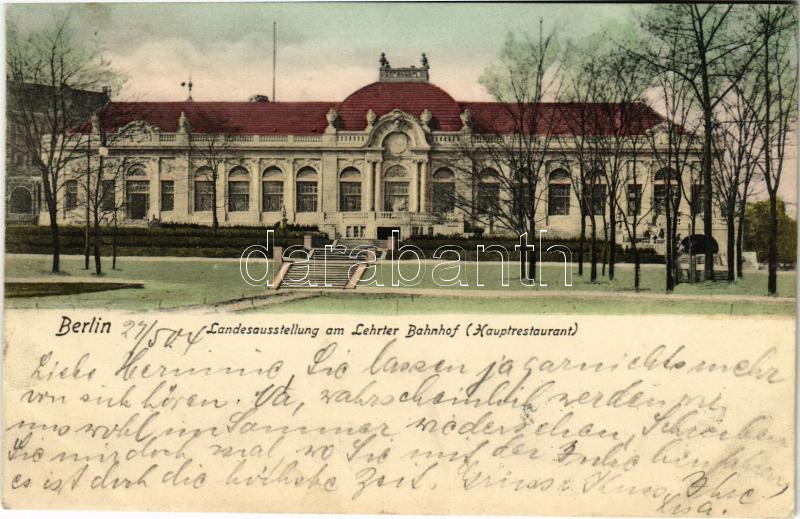 darabanth
Berlin 27/5 04 Landesausstellung am Lehrter Bahnhof (Hauptrestaurant)
Liebe Hermine, Sie lassen ja garnichts mehr
von sich hören. Na, wahrscheinlich werden wir
uns wohl im Sommer wiedersehen, Schreiben
Sie mir doch mal, wo Sie mit der
es ist doch die höchste Zeit. Gruss u. Kuss, Ihre